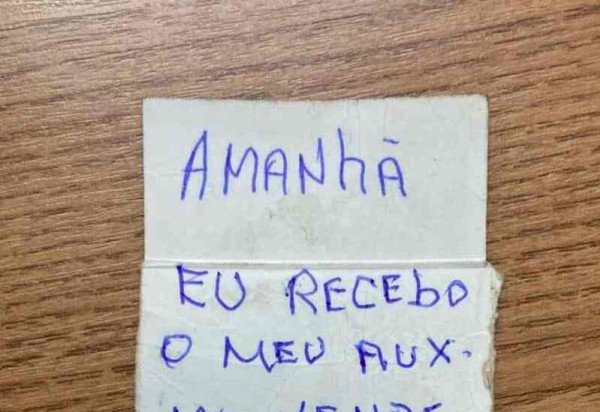 AMANhÃ
EU RECEbO
O MEU AUX.